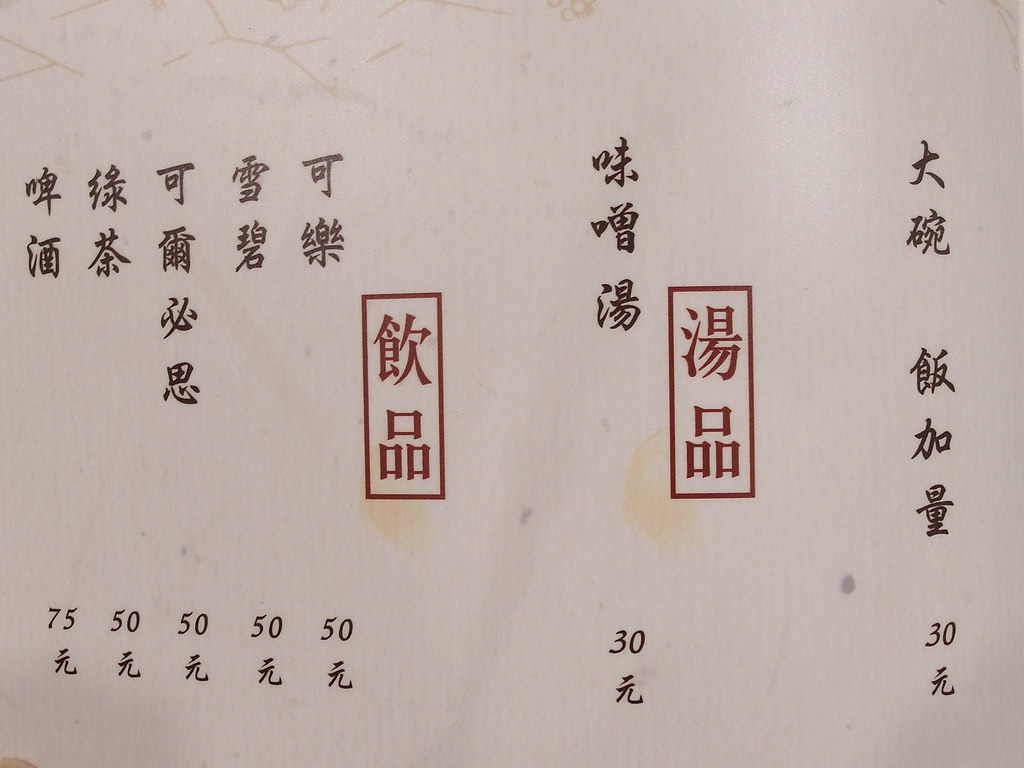 大碗 飯加量 30元
湯品
味噌湯 30元
飲品
可樂 50元
雪碧 50元
可爾必思 50元
綠茶 50元
啤酒 75元